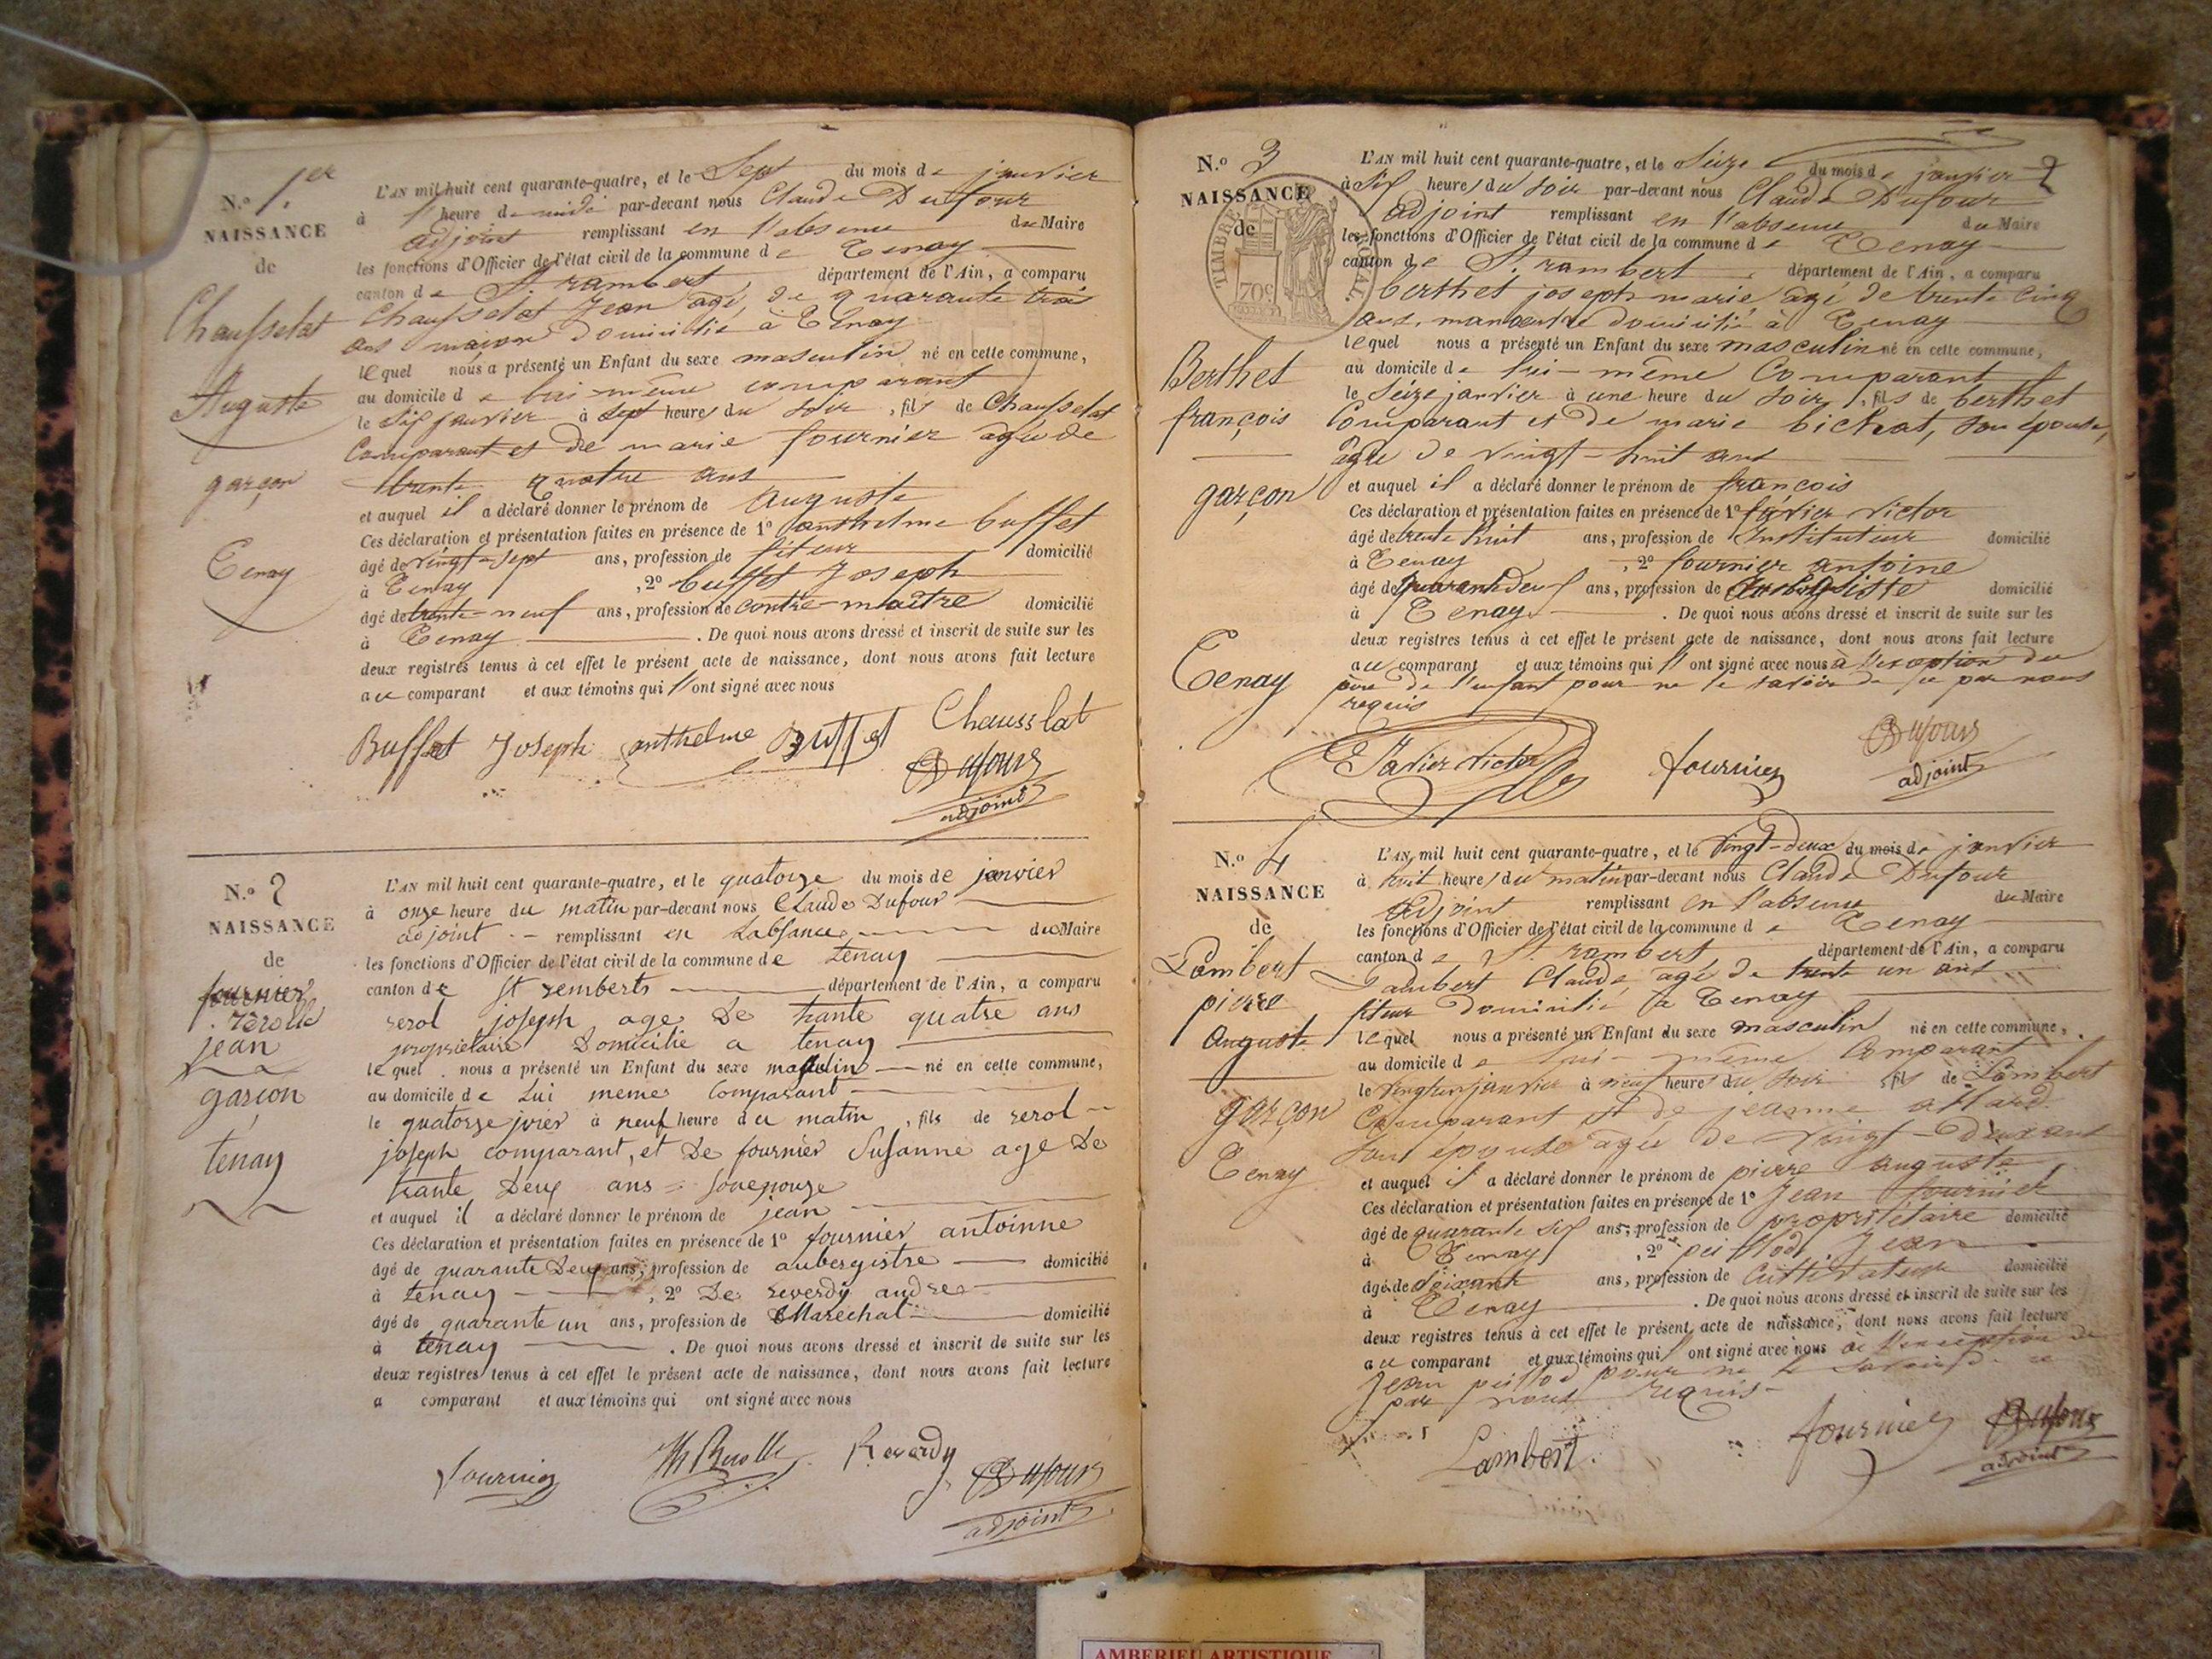 N.o 1.er
NAISSANCE
de
Chausselat
Auguste
garçon
Tenay
L'AN mil huit cent quarante-quatre, et le Sept du mois de janvier
à 1 heure de midi par-devant nous Claude Dufour
adjoint remplissant en l'absence du Maire
les fonctions d'Officier de l'état civil de la commune de Tenay
canton de St. rambert département de l'Ain, a comparu
Chausselat Jean agé de quarante trois
ans maçon domicilié à Tenay
lequel nous a présenté un Enfant du sexe masculin né en cette commune,
au domicile de lui-même comparant
le six janvier à sept heures du soir, fils de Chausselat
Comparant et de marie fournier agée de
trente quatre ans
et auquel il a déclaré donner le prénom de auguste
Ces déclaration et présentation faites en présence de 1o anthelme buffet
âgé de vingt-sept ans, profession de fileur domicilié
à Tenay, 2o buffet Joseph
âgé de trente-neuf ans, profession de contre-maître domicilié
à Tenay. De quoi nous avons dressé et inscrit de suite sur les
deux registres tenus à cet effet le présent acte de naissance, dont nous avons fait lecture
au comparant et aux témoins qui l'ont signé avec nous
Buffet Joseph anthelme Buffet Chausslat
Dufour
adjoint
N.o 2
NAISSANCE
de
fournier
jean
garcon
tenay
L'AN mil huit cent quarante-quatre, et le quatorze du mois de janvier
à onze heure du matin par-devant nous Claude Dufour
adjoint remplissant en Labsance du Maire
les fonctions d'Officier de l'état civil de la commune de tenay
canton de St remberts département de l'Ain, a comparu
rerol joseph age De trante quatre ans
proprietaire Domicilié a tenay
lequel nous a présenté un Enfant du sexe masculin né en cette commune,
au domicile de Lui meme Comparant
le quatorze jovier à neuf heure du matin, fils de rerol
joseph comparant, et De fournier Susanne age De
trante Deux ans
et auquel il a déclaré donner le prénom de jean
Ces déclaration et présentation faites en présence de 1o fournier antoinne
âgé de quarante Deux ans, profession de aubergistre domicilié
à tenay, 2o De reverdy andre
âgé de quarante un ans, profession de Marechal domicilié
à tenay. De quoi nous avons dressé et inscrit de suite sur les
deux registres tenus à cet effet le présent acte de naissance, dont nous avons fait lecture
a comparant et aux témoins qui ont signé avec nous
fournier Reverdy Dufour
adjoint
N.o 3
NAISSANCE
de
TIMBRE ROYAL
70c
Berthet
françois
garçon
Tenay
2
L'AN mil huit cent quarante-quatre, et le Seize du mois de janvier
à Six heures du soir par-devant nous Claude Dufour
adjoint remplissant en l'absence du Maire
les fonctions d'Officier de l'état civil de la commune de Tenay
canton de St. rambert, département de l'Ain, a comparu
berthet joseph marie agé de trente cinq
ans, manoeuvre domicilié à Tenay
lequel nous a présenté un Enfant du sexe masculin né en cette commune,
au domicile de lui-même Comparant
le Seize janvier à une heure du soir, fils de berthet
Comparant et de marie bichat, son épouse,
agée de vingt-huit ans
et auquel il a déclaré donner le prénom de françois
Ces déclaration et présentation faites en présence de 1o victor
âgé de trente huit ans, profession de Instituteur domicilié
à Tenay, 2o fournier antoine
âgé de quarante deux ans, profession de domicilié
à Tenay. De quoi nous avons dressé et inscrit de suite sur les
deux registres tenus à cet effet le présent acte de naissance, dont nous avons fait lecture
au comparant et aux témoins qui l'ont signé avec nous à l'exception du
père de l'enfant pour ne le savoir de ce par nous
requis
Victor fournier Dufour
adjoint
N.o 4
NAISSANCE
de
Lambert
pierre
Auguste
garçon
Tenay
L'AN mil huit cent quarante-quatre, et le vingt-deux du mois de janvier
à huit heures du matin par-devant nous Claude Dufour
adjoint remplissant en l'absence du Maire
les fonctions d'Officier de l'état civil de la commune de Tenay
canton de St. rambert département de l'Ain, a comparu
Lambert Claude, agé de trente un ans
fileur domicilié à Tenay
lequel nous a présenté un Enfant du sexe masculin né en cette commune,
au domicile de lui-même Comparant
le vingt un janvier à neuf heures du soir, fils de Lambert
Comparant et de jeanne
son épouse agée de vingt-deux ans
et auquel il a déclaré donner le prénom de pierre auguste
Ces déclaration et présentation faites en présence de 1o Jean fournier
âgé de quarante six ans, profession de propriétaire domicilié
à Tenay, 2o peillod Jean
âgé de soixante ans, profession de Cultivateur domicilié
à Tenay. De quoi nous avons dressé et inscrit de suite sur les
deux registres tenus à cet effet le présent acte de naissance, dont nous avons fait lecture
au comparant et aux témoins qui l'ont signé avec nous à l'exception de
Jean peillod pour ne le savoir de ce
par nous requis
Lambert. fournier Dufour
adjoint
AMBERIEU ARTISTIQUE